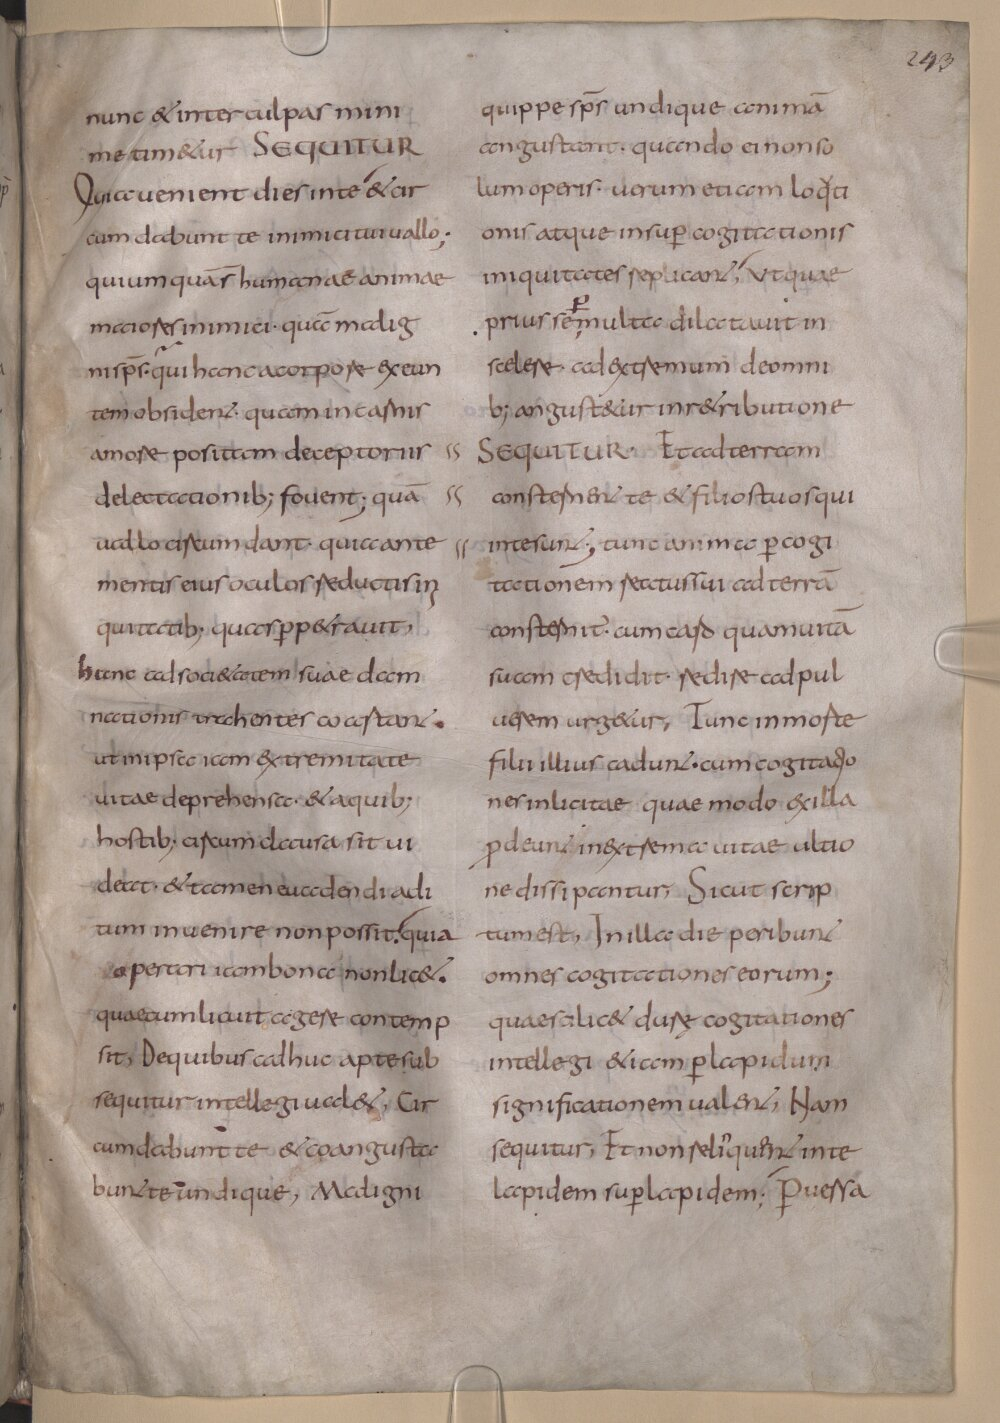 243
nunc & inter culpas mini
me tim&ur SEQUITUR
Quia uenient dies in te & cir
cumdabunt te inimici tui uallo;
qui umquā s̄ humanae animae
maiores inimici· quā malig
ni sp̄s· qui hanc a corpore exeun
tem obsident· quam in carnis
amore positam deceptoriis
delectationib; fouent; quā
uallo circumdant· quia ante
mentis eius oculos reductis in
quitatib; quas perp&rauit,
hanc ad soci&atem suae dam
nationis trahentes coartant.
ut in ipsa iam extremitate
uitae deprehensa· & a quib;
hostib; circumclausa sit ui
deat· & tamen euadendi adi
tum inuenire non possit. quia
operari iam bona non lic&.
quae cum licuit agere contemp
sit, De quibus adhuc apte sub
sequitur intellegi ual&, Cir
cumdabunt te & coangusta
bunt te undique, Maligni
quippe sp̄s undique animā
angustant· quando ei non so
lum operis· uerum etiam loq̄ti
onis atque insup̱ cogitationis
iniquitates replicant, Ut quae
prius se per multa dilatauit in
scelere· ad extremum de omni
b; angust&ur in r&ributione
SEQUITUR· Et ad terram
consternent te & filios tuos qui
in te sunt; tunc anima p̱ cogi
tationem reatus sui ad terrā
consternit̄· cum caro quam uitā
suam credidit· redire ad pul
uerem urg&ur, Tunc in morte
filii illius cadunt· cum cogitatio
nes inlicitae quae modo ex illa
p̱deunt in extrema uitae ultio
ne dissipantur, Sicut scrip
tum est, In illa die peribunt
omnes cogitationes eorum;
quae scilic& dure cogitationes
intellegi & iam p̱ lapidum
significationem ualent, Nam
sequitur, Et non relinquent in te
lapidem sup̱ lapidem; Peruersa